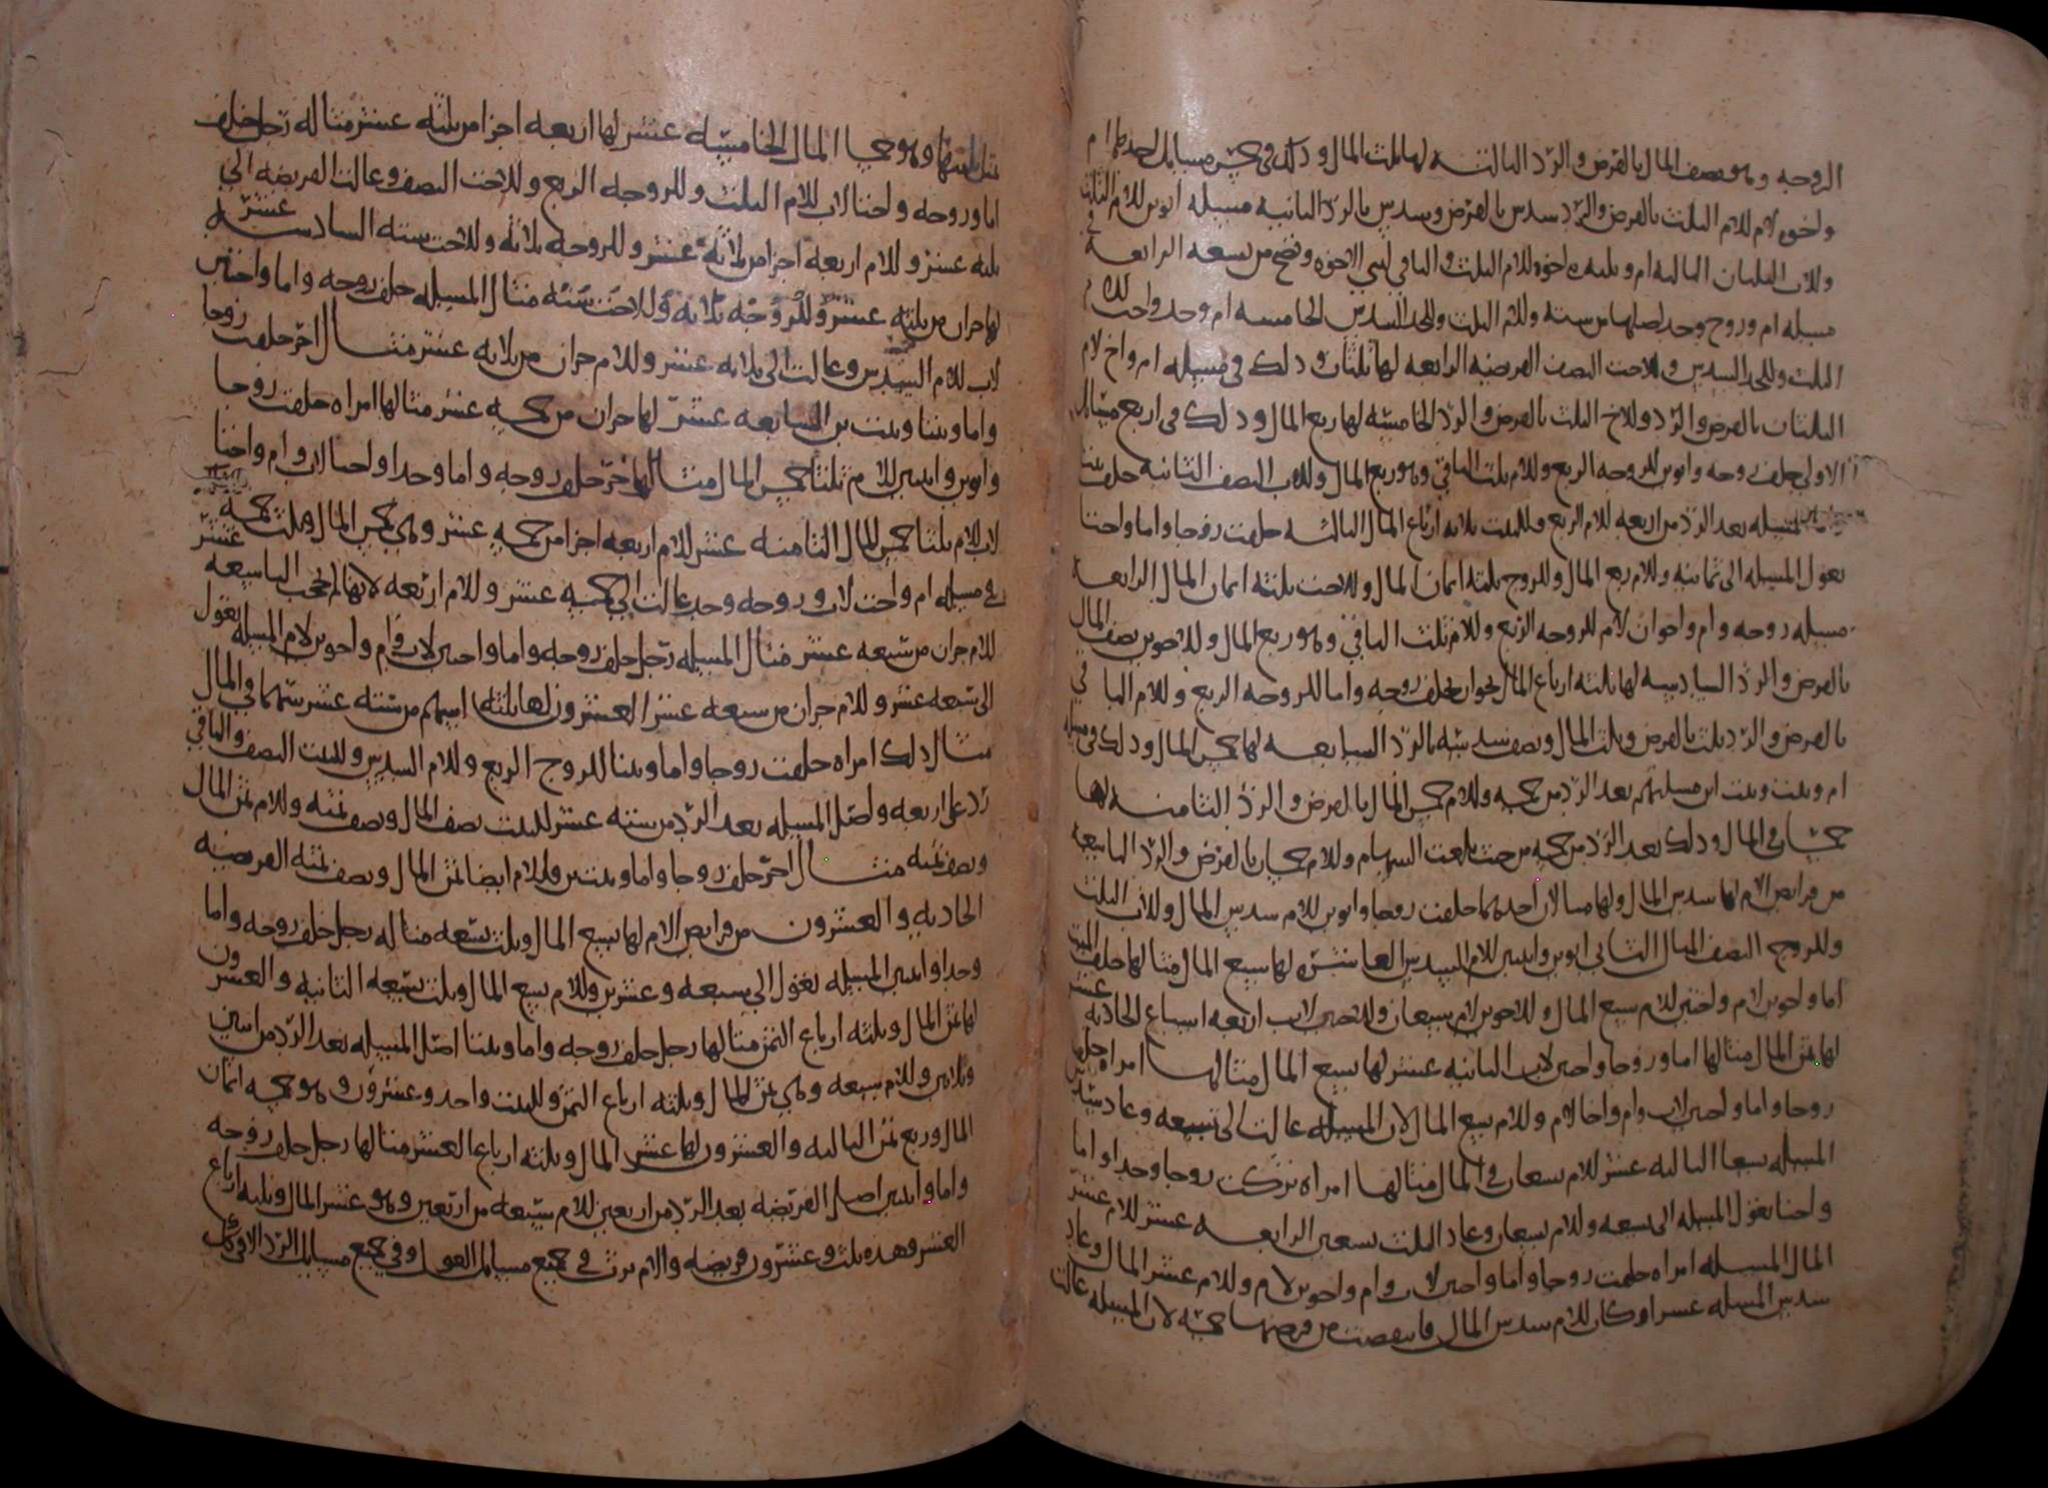 الزوجة وهو نصف المال بالفرض والرد الثالثة لها ثلث المال وذلك في خمس مسايل احدها ام
واخوه لام للام الثلث بالفرض والرد سدس بالفرض وسدس بالرد الثانية مسيله ابوين للام الثلث
وللاب الثلثان الثالثه ام وثلثه اخوه للام الثلث والباقي لبني الاخوه وتصح من تسعه الرابعة في
مسيله ام وزوج وجد اصلها من سته وللام الثلث وللجد السدس الخامسه ام وجد واخت للام
الثلث وللجد السدس وللاخت النصف الفرضيه الرابعه لها ثلثان وذلك في مسيله ام واخ لام
الثلثان بالفرض والرد وللاخ الثلث بالفرض والرد الخامسة لها ربع المال وذلك في اربع مسايل
الاولى خلف زوجه وابوين للزوجه الربع وللام ثلث الباقي وهو ربع المال وللاب النصف الثانية خلف بنتا
المسيله بعد الرد من اربعه للام الربع وللبنت ثلاثه ارباع المال الثالثه خلفت زوجا واما واختا
تعول المسيله الى ثمانيه وللام ربع المال وللزوج ثلثه اثمان المال وللاخت ثلثه اثمان المال الرابعة
مسيله زوجه وام واخوان لام للزوجه الربع وللام ثلث الباقي وهو ربع المال وللاخوين نصف المال
بالفرض والرد السادسه لها ثلثه ارباع المال نحو ان يخلف زوجه واما للزوجه الربع وللام الباقي
بالفرض والرد ثلث بالفرض وثلث المال ونصف سدسه بالرد السابعه لها خمس المال وذلك في مسيله
ام وبنت وبنت ابن مسيلتهم بعد الرد من خمسه وللام خمس المال بالفرض والرد الثامنه لها
خمسا في المال وذلك بعد الرد من خمسه من حيث بلغت السهام وللام خمسان بالفرض والرد التاسعة
من فرايض الام لها سدس المال ولها مثالان احدهما خلفت زوجا وابوين للام سدس المال وللاب الثلث
وللزوج النصف المثال الثاني ابوين وابنين للام السدس العاشره لها سبع المال مثالها خلف الميت
اما واخوين لام واختين للام سبع المال وللاخوين لام سبعان وللاختين لاب اربعه اسباع الحاديه عشر
لها ثمن المال مثالها اما وزوجا واختين لاب الثانيه عشر لها تسع المال مثالها امراه خلفت
زوجا واما واختين لاب وام واخا لام وللام تسع المال لان المسيله عالت الى تسعه وعاد سدس
المسيله تسعا الثالثه عشر للام تسعان في المال مثالها امراه تركت زوجا وجدا واما
واختا تعول المسيله الى تسعه وللام تسعان وعاد الثلث تسعين الرابعه عشر للام عشر
المال المسيله امراه خلفت زوجا واما واختين لاب وام واخوين لام وللام عشر المال وعاد
سدس المسيله عشرا وكان للام سدس المال فانتقصت من فرضها خمسه لان المسيله عالت
مثل ثلثيها وهو خمسا المال الخامسه عشر لها اربعه اجزا من ثلثه عشر مثاله رجل خلف
اما وزوجه واختا لاب للام الثلث وللزوجه الربع وللاخت النصف وعالت الفريضه الى
ثلثه عشر وللام اربعه اجزا من ثلاثة عشر وللزوجه ثلاثه وللاخت سته السادسه عشر
لها جزان من ثلثه عشر وللزوجه ثلاثه وللاخت سته مثال المسيله خلف زوجه واما واختين
لاب للام السدس وعالت الى ثلاثه عشر وللام جزان من ثلاثه عشر مثال اخر خلفت زوجا
واما وبنتا وبنت بن السابعه عشر لها جزان من خمسه عشر مثالها امراه خلفت زوجا
وابوين وابنتين للام ثلثا خمس المال مثال اخر خلف زوجه واما وجدا واختا لاب وام واختا
لاب للام ثلثا خمس المال الثامنه عشر للام اربعه اجزا من خمسه عشر وهي خمس المال وثلث خمسه
في مسيله ام واخت لاب وزوجه وجد عالت الى خمسه عشر وللام اربعه لانها لم تحجب التاسعه عشر
للام جزان من سبعه عشر مثال المسيله رجل خلف زوجه واما واختين لاب وام واخوين لام المسيله تعول
الى سبعه عشر وللام جزان من سبعه عشر العشرون لها ثلثه اسهم من سته عشر سهما في المال
مثال ذلك امراه خلفت زوجا واما وبنتا للزوج الربع وللام السدس وللبنت النصف والباقي
رد على اربعه واصل المسيله بعد الرد من سته عشر للبنت نصف المال ونصف ثمنه وللام ثمن المال
ونصف ثمنه مثال اخر خلف زوجا واما وبنت بن وللام ايضا ثمن المال ونصف ثمنه الفرضيه
الحاديه والعشرون من فرايض الام لها تسع المال وثلث تسعه مثاله رجل خلف زوجه واما
وجدا وابنتين المسيله تعول الى سبعه وعشرين وللام تسع المال وثلث تسعه الثانيه والعشرون
لها ثمن المال وثلثه ارباع الثمن مثالها رجل خلف زوجه واما وبنتا اصل المسيله بعد الرد من اثنين
وثلاثين وللام سبعه وهي ثمن المال وثلثه ارباع الثمن وللبنت واحد وعشرون وهو خمسه اثمان
المال وربع ثمن الثالثه والعشرون لها عشر المال وثلثه ارباع العشر مثالها رجل خلف زوجه
واما وابنتين اصل الفريضه بعد الرد من اربعين للام سبعه من اربعين وهو عشر المال وثلثه ارباع
العشر وهذه ثلث وعشرون فريضه والام ترث في جميع مسايل العول وفي جميع مسايل الرد الا في